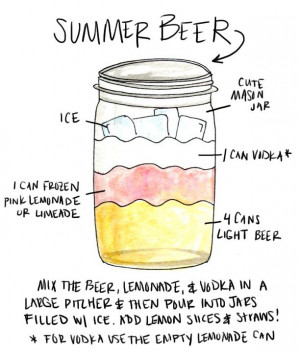 SUMMER BEER
CUTE
MASON
JAR
ICE
1 CAN VODKA*
1 CAN FROZEN
PINK LEMONADE
OR LIMEADE
4 CANS
LIGHT BEER
MIX THE BEER, LEMONADE, & VODKA IN A
LARGE PITCHER & THEN POUR INTO JARS
FILLED W/ ICE. ADD LEMON SLICES & STRAWS!
* FOR VODKA USE THE EMPTY LEMONADE CAN